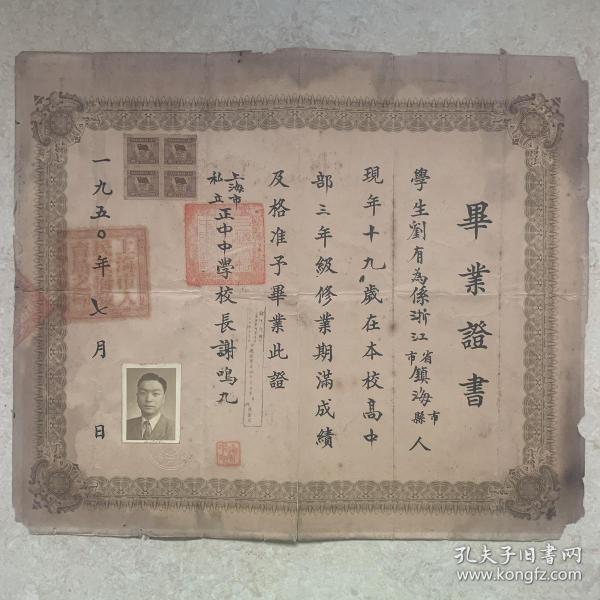 畢業證書
學生劉有為係浙江省市鎮海市縣人
現年十九歲在本校高中
部三年級修業期滿成績
及格准予畢業此證
上海市私立正中中學校長謝鳴九
一九五〇年七月 日
孔夫子旧书网
www.kongfz.com